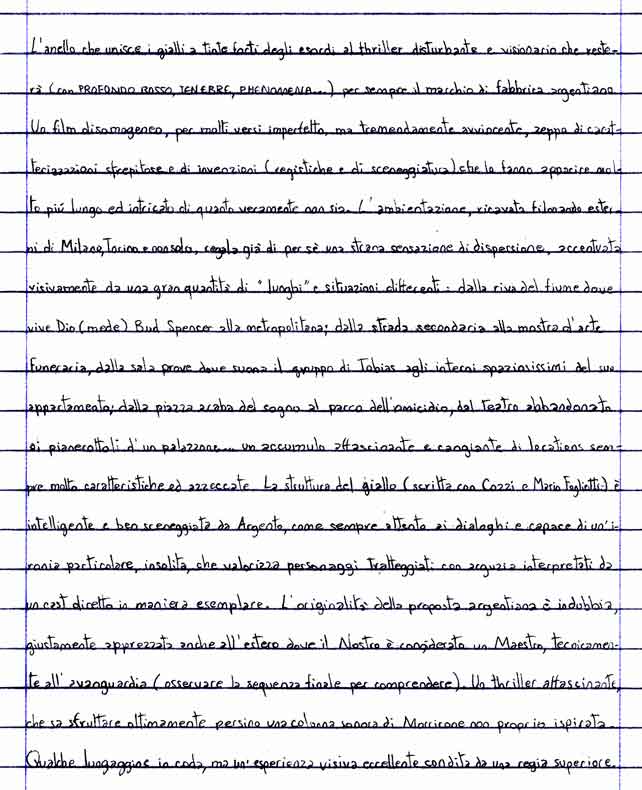 L'anello che unisce i gialli a tinte forti degli esordi al thriller disturbante e visionario che reste-
rà (con PROFONDO ROSSO, TENEBRE, PHENOMENA...) per sempre il marchio di fabbrica argentiano.
Un film disomogeneo, per molti versi imperfetto, ma tremendamente avvincente, zeppo di carat-
terizzazioni strepitose e di invenzioni (registiche e di sceneggiatura) che lo fanno apparire mol-
to più lungo ed intricato di quanto veramente non sia. L'ambientazione, ricavata filmando ester-
ni di Milano, Torino e non solo, regala già di per sè una strana sensazione di dispersione, accentuata
visivamente da una gran quantità di "luoghi" e situazioni differenti: dalla riva del fiume dove
vive Dio (mede) Bud Spencer alla metropolitana; dalla strada secondaria alla mostra d'arte
funeraria, dalla sala prove dove suona il gruppo di Tobias agli interni spaziosissimi del suo
appartamento; dalla piazza araba del sogno al parco dell'omicidio, dal teatro abbandonato
ai pianerottoli d'un palazzone... un accumulo affascinante e cangiante di locations sem-
pre molto caratteristiche ed azzeccate. La struttura del giallo (scritta con Cozzi e Mario Foglietti) è
intelligente e ben sceneggiata da Argento, come sempre attento ai dialoghi e capace di un'i-
ronia particolare, insolita, che valorizza personaggi tratteggiati con arguzia interpretati da
un cast diretto in maniera esemplare. L'originalità della proposta argentiana è indubbia,
giustamente apprezzata anche all'estero dove il Nostro è considerato un Maestro, tecnicamen-
te all'avanguardia (osservare la sequenza finale per comprendere). Un thriller affascinante,
che sa sfruttare ottimamente persino una colonna sonora di Morricone non proprio ispirata.
Qualche lungaggine in coda, ma un'esperienza visiva eccellente condita da una regia superiore.